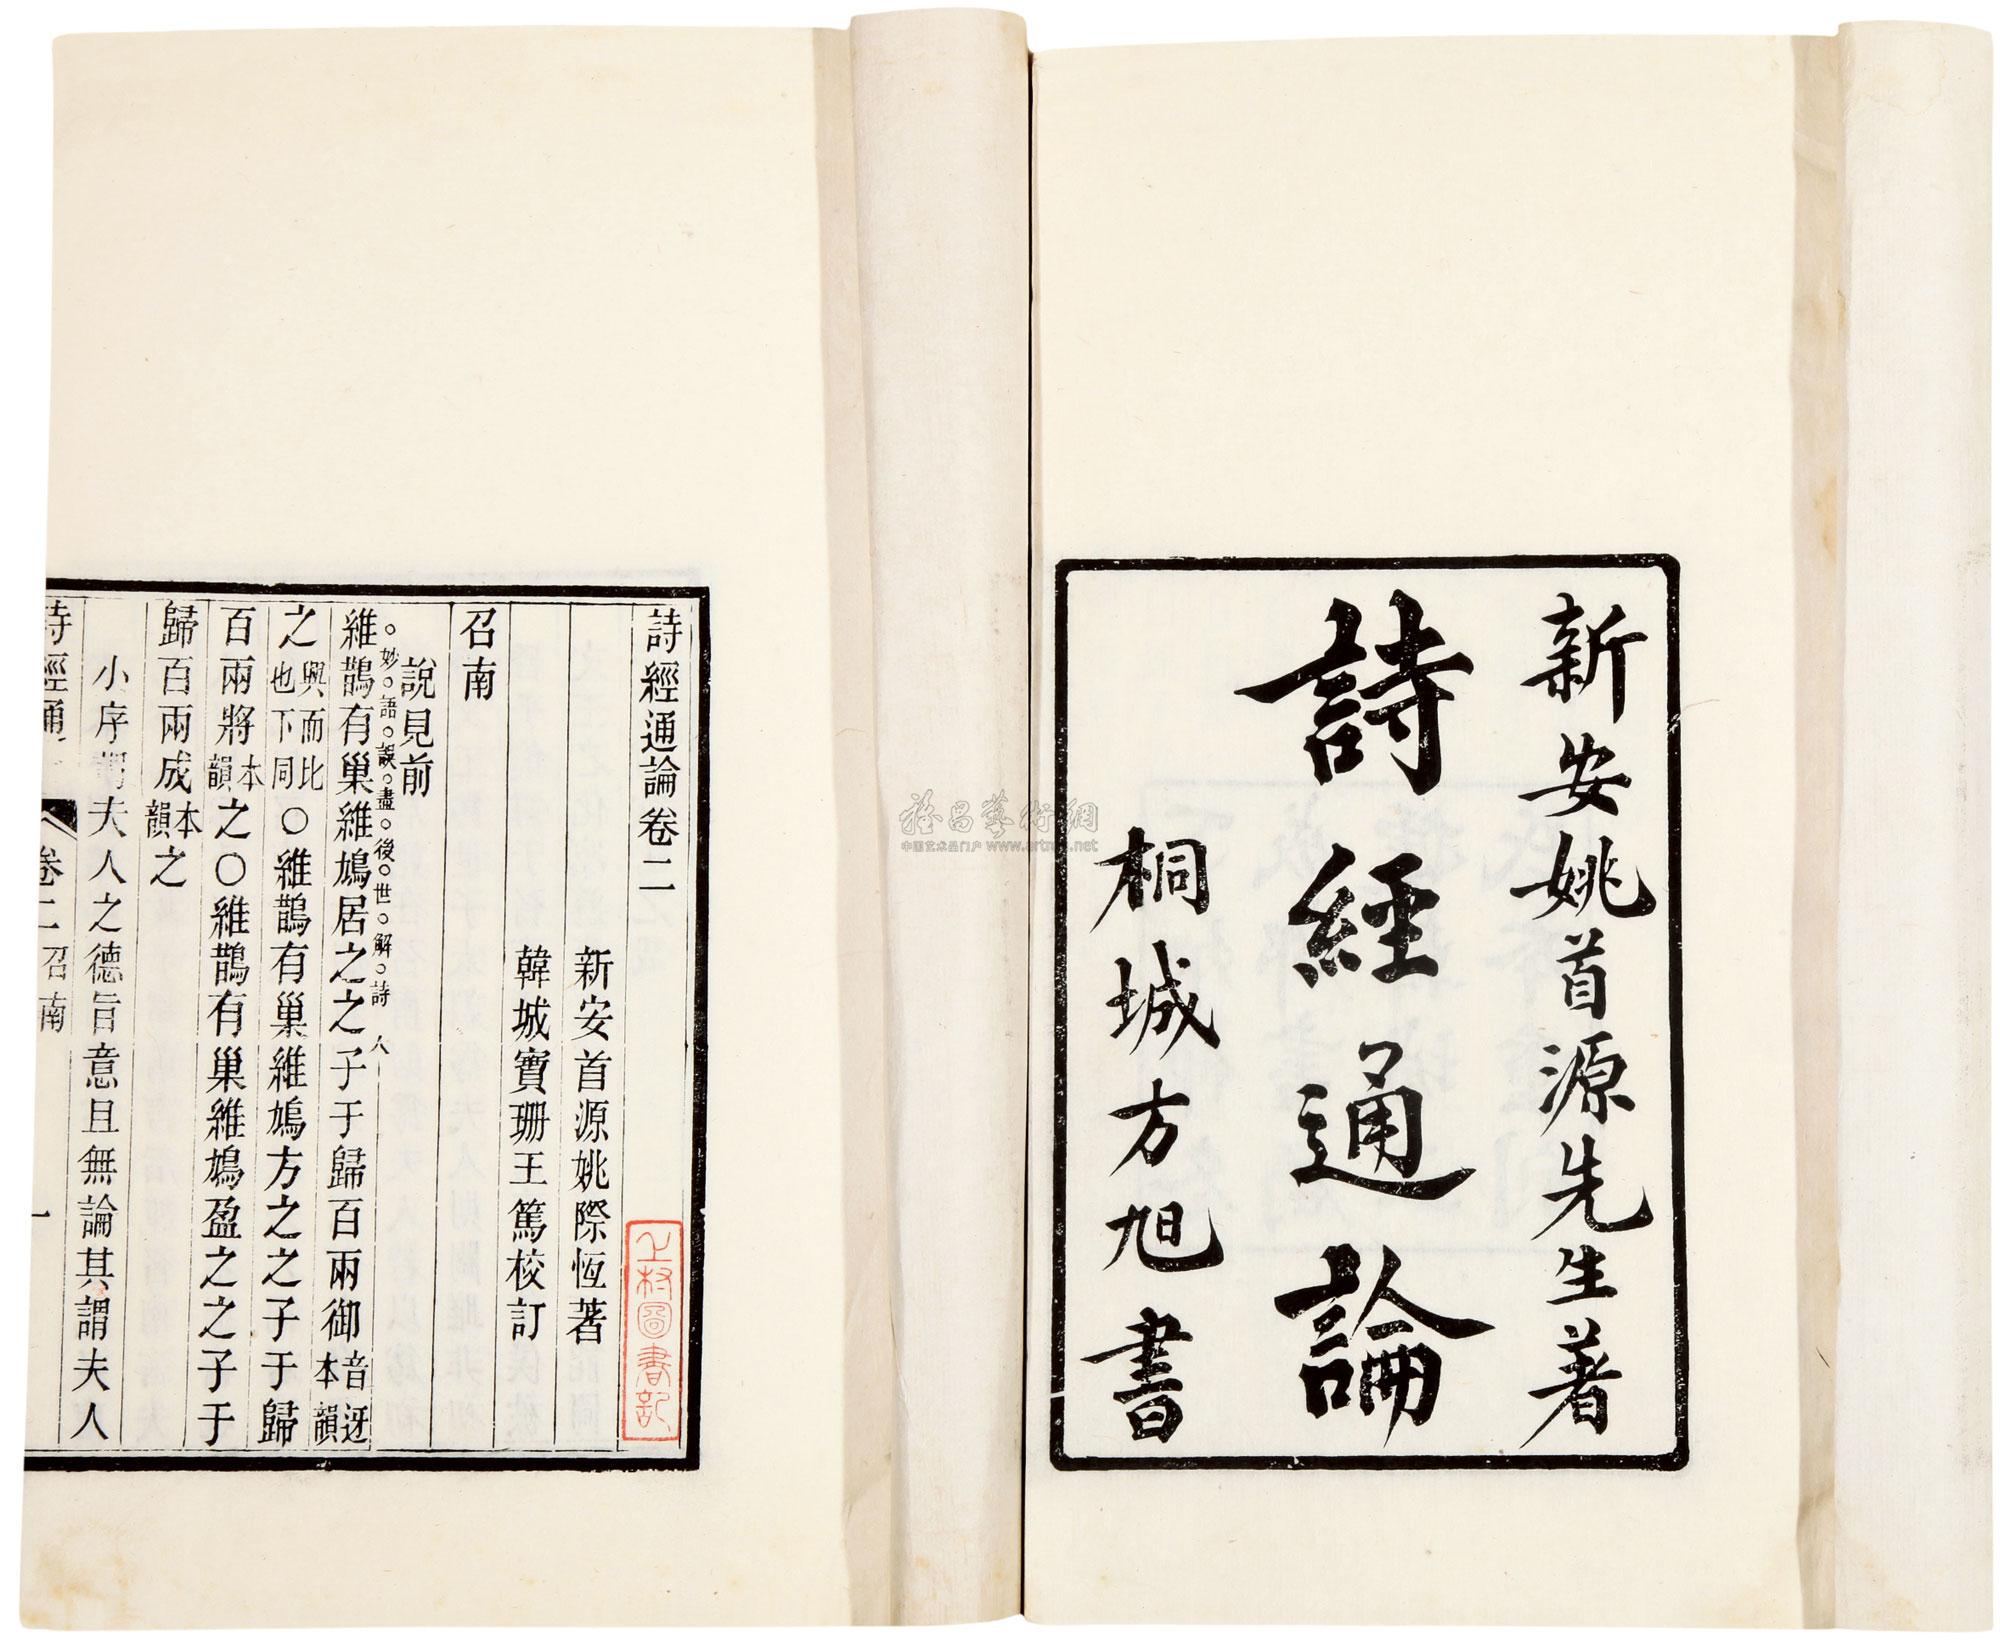 新安姚首源先生著
詩經通論
桐城方旭書
詩經通論卷二
新安首源姚際恆著
韓城寶珊王篤校訂
召南
說見前
妙語誤盡後世解詩人
維鵲有巢維鳩居之之子于歸百兩御音迓本韻
之興而比也下同○維鵲有巢維鳩方之之子于歸
百兩將本韻之○維鵲有巢維鳩盈之之子于
歸百兩成本韻之
小序謂夫人之德旨意且無論其謂夫人
詩經通 卷二 召南 一
上村圖書記
中国艺术品门户 www.artron.net